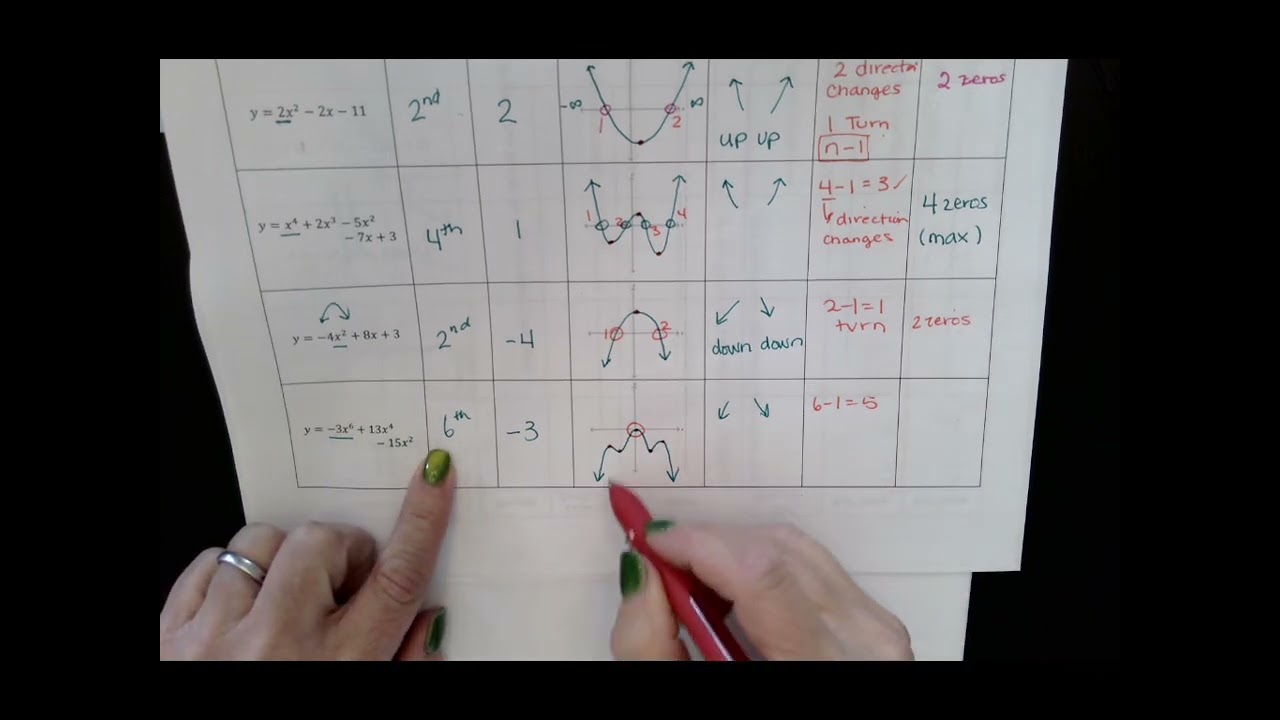 y = 2x² − 2x − 11
2nd
2
-∞ ∞
1 2
up up
2 direction
changes
1 Turn
n-1
2 zeros
y = x⁴ + 2x³ − 5x²
− 7x + 3
4th
1
1 2 3 4
4-1=3✓
↳direction
changes
4 zeros
(max)
y = −4x² + 8x + 3
2nd
-4
1 2
down down
2-1=1
turn
2 zeros
y = −3x⁶ + 13x⁴
− 15x²
6th
-3
6-1=5